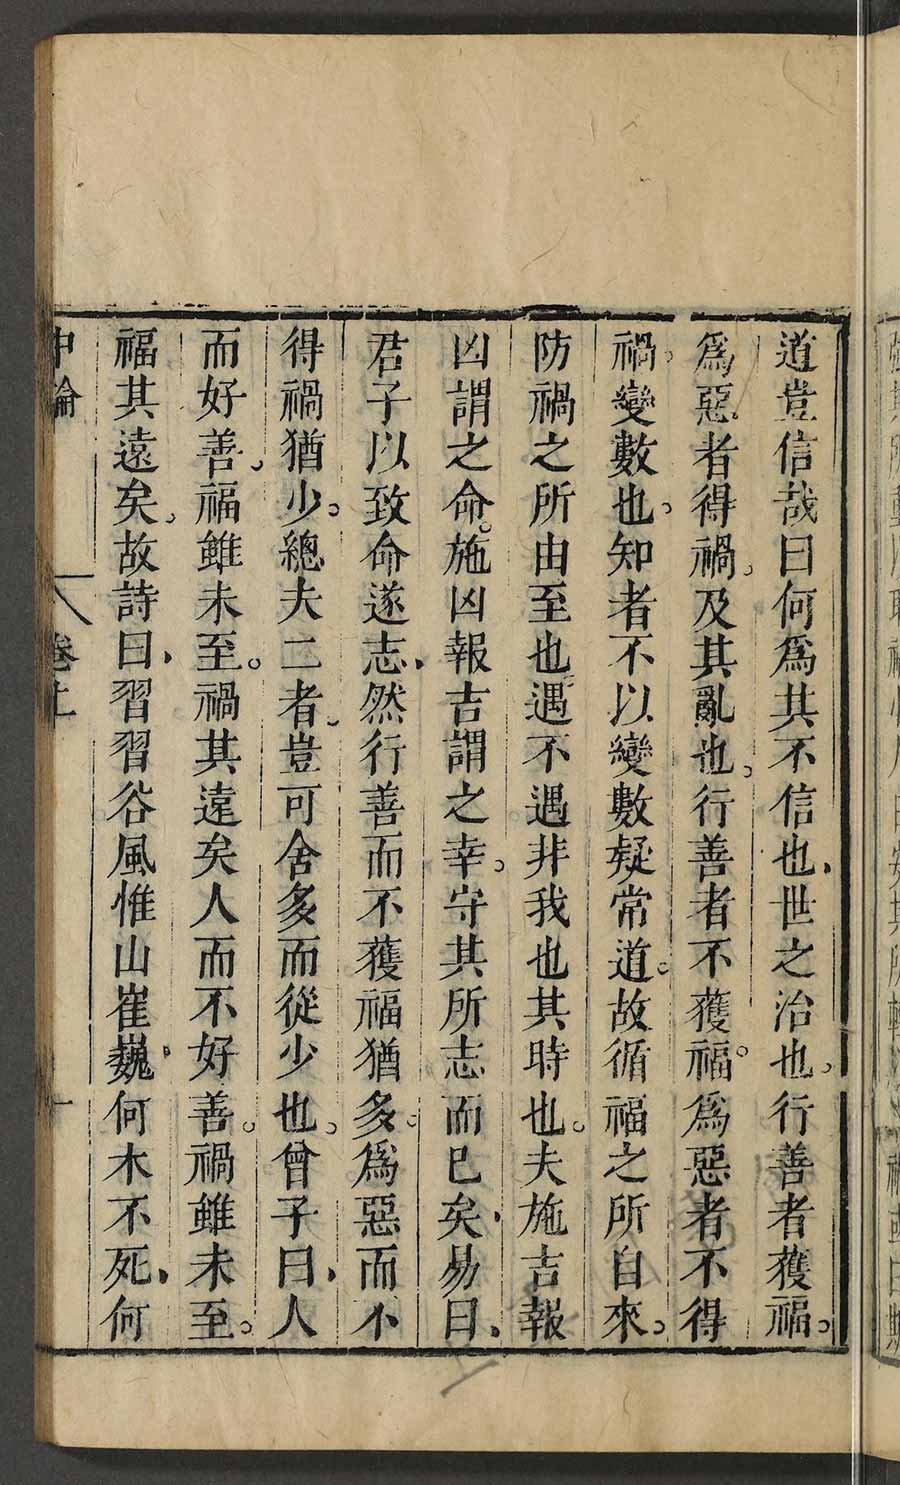 道豈信哉曰何爲其不信也世之治也。行善者獲福。
爲惡者得禍。及其亂也。行善者不獲福。爲惡者不得
禍。變數也。知者不以變數疑常道。故循福之所自來。
防禍之所由至也遇不遇非我也其時也。夫施吉報
凶謂之命。施凶報吉謂之幸。守其所志而已矣易曰、
君子以致命遂志、然行善而不獲福猶多。爲惡而不
得禍猶少。總夫二者。豈可舍多而從少也。曾子曰、人
而好善。福雖未至。禍其遠矣人而不好善。禍雖未至。
福其遠矣。故詩曰、習習谷風惟山崔巍、何木不死、何
中論
卷上